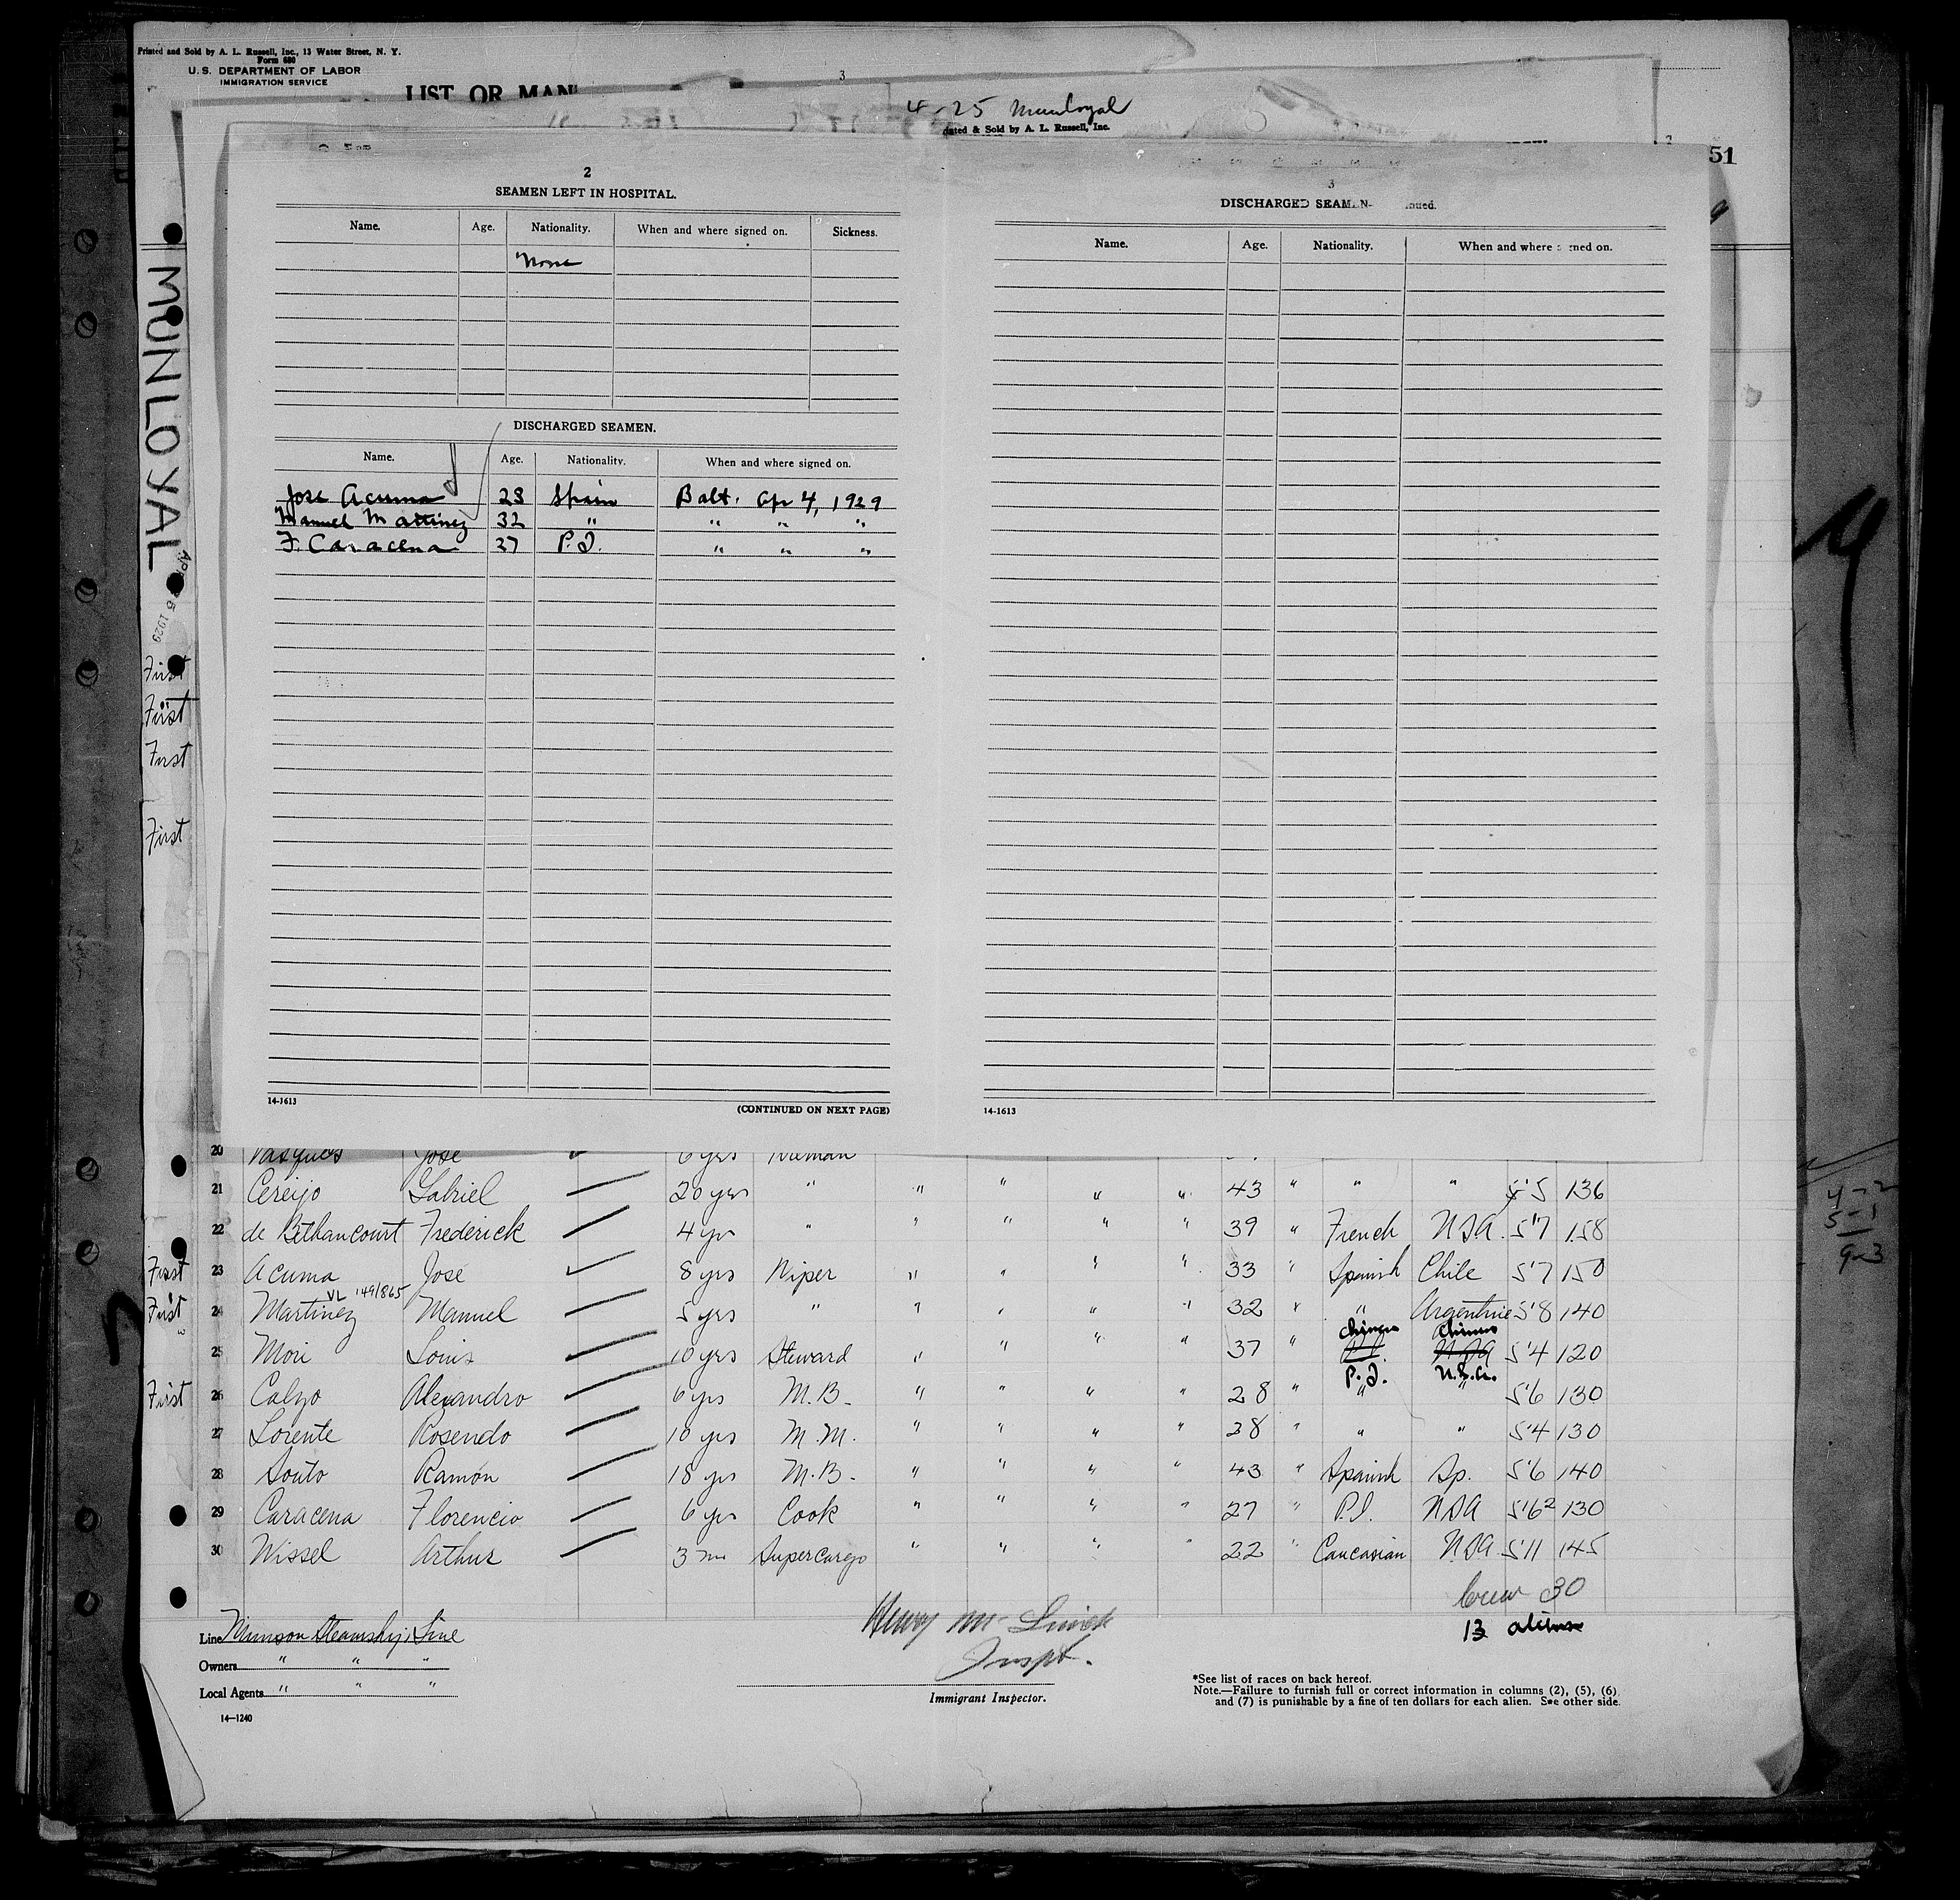 Printed and Sold by A. L. Russell, Inc., 13 Water Street, N. Y.
Form 680
U. S. DEPARTMENT OF LABOR
IMMIGRATION SERVICE
LIST OR MAN
3
4-25 Munloyal
& Sold by A. L. Russell, Inc.
51
MUNLOYAL
1929
2
SEAMEN LEFT IN HOSPITAL.
Name. Age. Nationality. When and where signed on. Sickness.
None
DISCHARGED SEAMEN.
Name. Age. Nationality. When and where signed on.
Jose Acuma 28 Spain Balt. Apr 4, 1929
Manuel Martinez 32 " " " "
F. Caracena 27 P.I. " " "
14-1613 (CONTINUED ON NEXT PAGE)
3
DISCHARGED SEAMEN
Name. Age. Nationality. When and where signed on.
14-1613
First
First
First
First
20 Vasques Jose 6 yrs Fireman
21 Cereijo Gabriel 20 yrs " " " " " 43 " " " 5'5 136
22 de Bethancourt Frederick 4 yrs " " " " " 39 " French USA. 5'7 158
First 23 Acuma Jose 8 yrs Wiper " " " " 33 " Spanish Chile 5'7 150
VL 149/865
First 24 Martinez Manuel 5 yrs " " " " " 32 " " Argentine 5'8 140
Chinese Chinese
25 Mori Louis 10 yrs Steward " " " " 37 " P.I. USA 5'4 120
P.I. U.S.A.
First 26 Calzo Alexandro 6 yrs M.B. " " " " 28 " " " 5'6 130
27 Lorente Rosendo 10 yrs M.M. " " " " 38 " " " 5'4 130
28 Souto Ramón 18 yrs M.B. " " " " 43 " Spanish Sp. 5'6 140
29 Caracena Florencio 6 yrs Cook " " " " 27 " P.I. USA 5'6² 130
30 Wissel Arthur 3 mo Supercargo " " " " 22 " Caucasian USA 5'11 145
Crew 30
13 aliens
Line Munson Steamship Line
Owners " " "
Local Agents " " "
14-1240
Inspt.
Immigrant Inspector.
*See list of races on back hereof.
Note.—Failure to furnish full or correct information in columns (2), (5), (6)
and (7) is punishable by a fine of ten dollars for each alien. See other side.